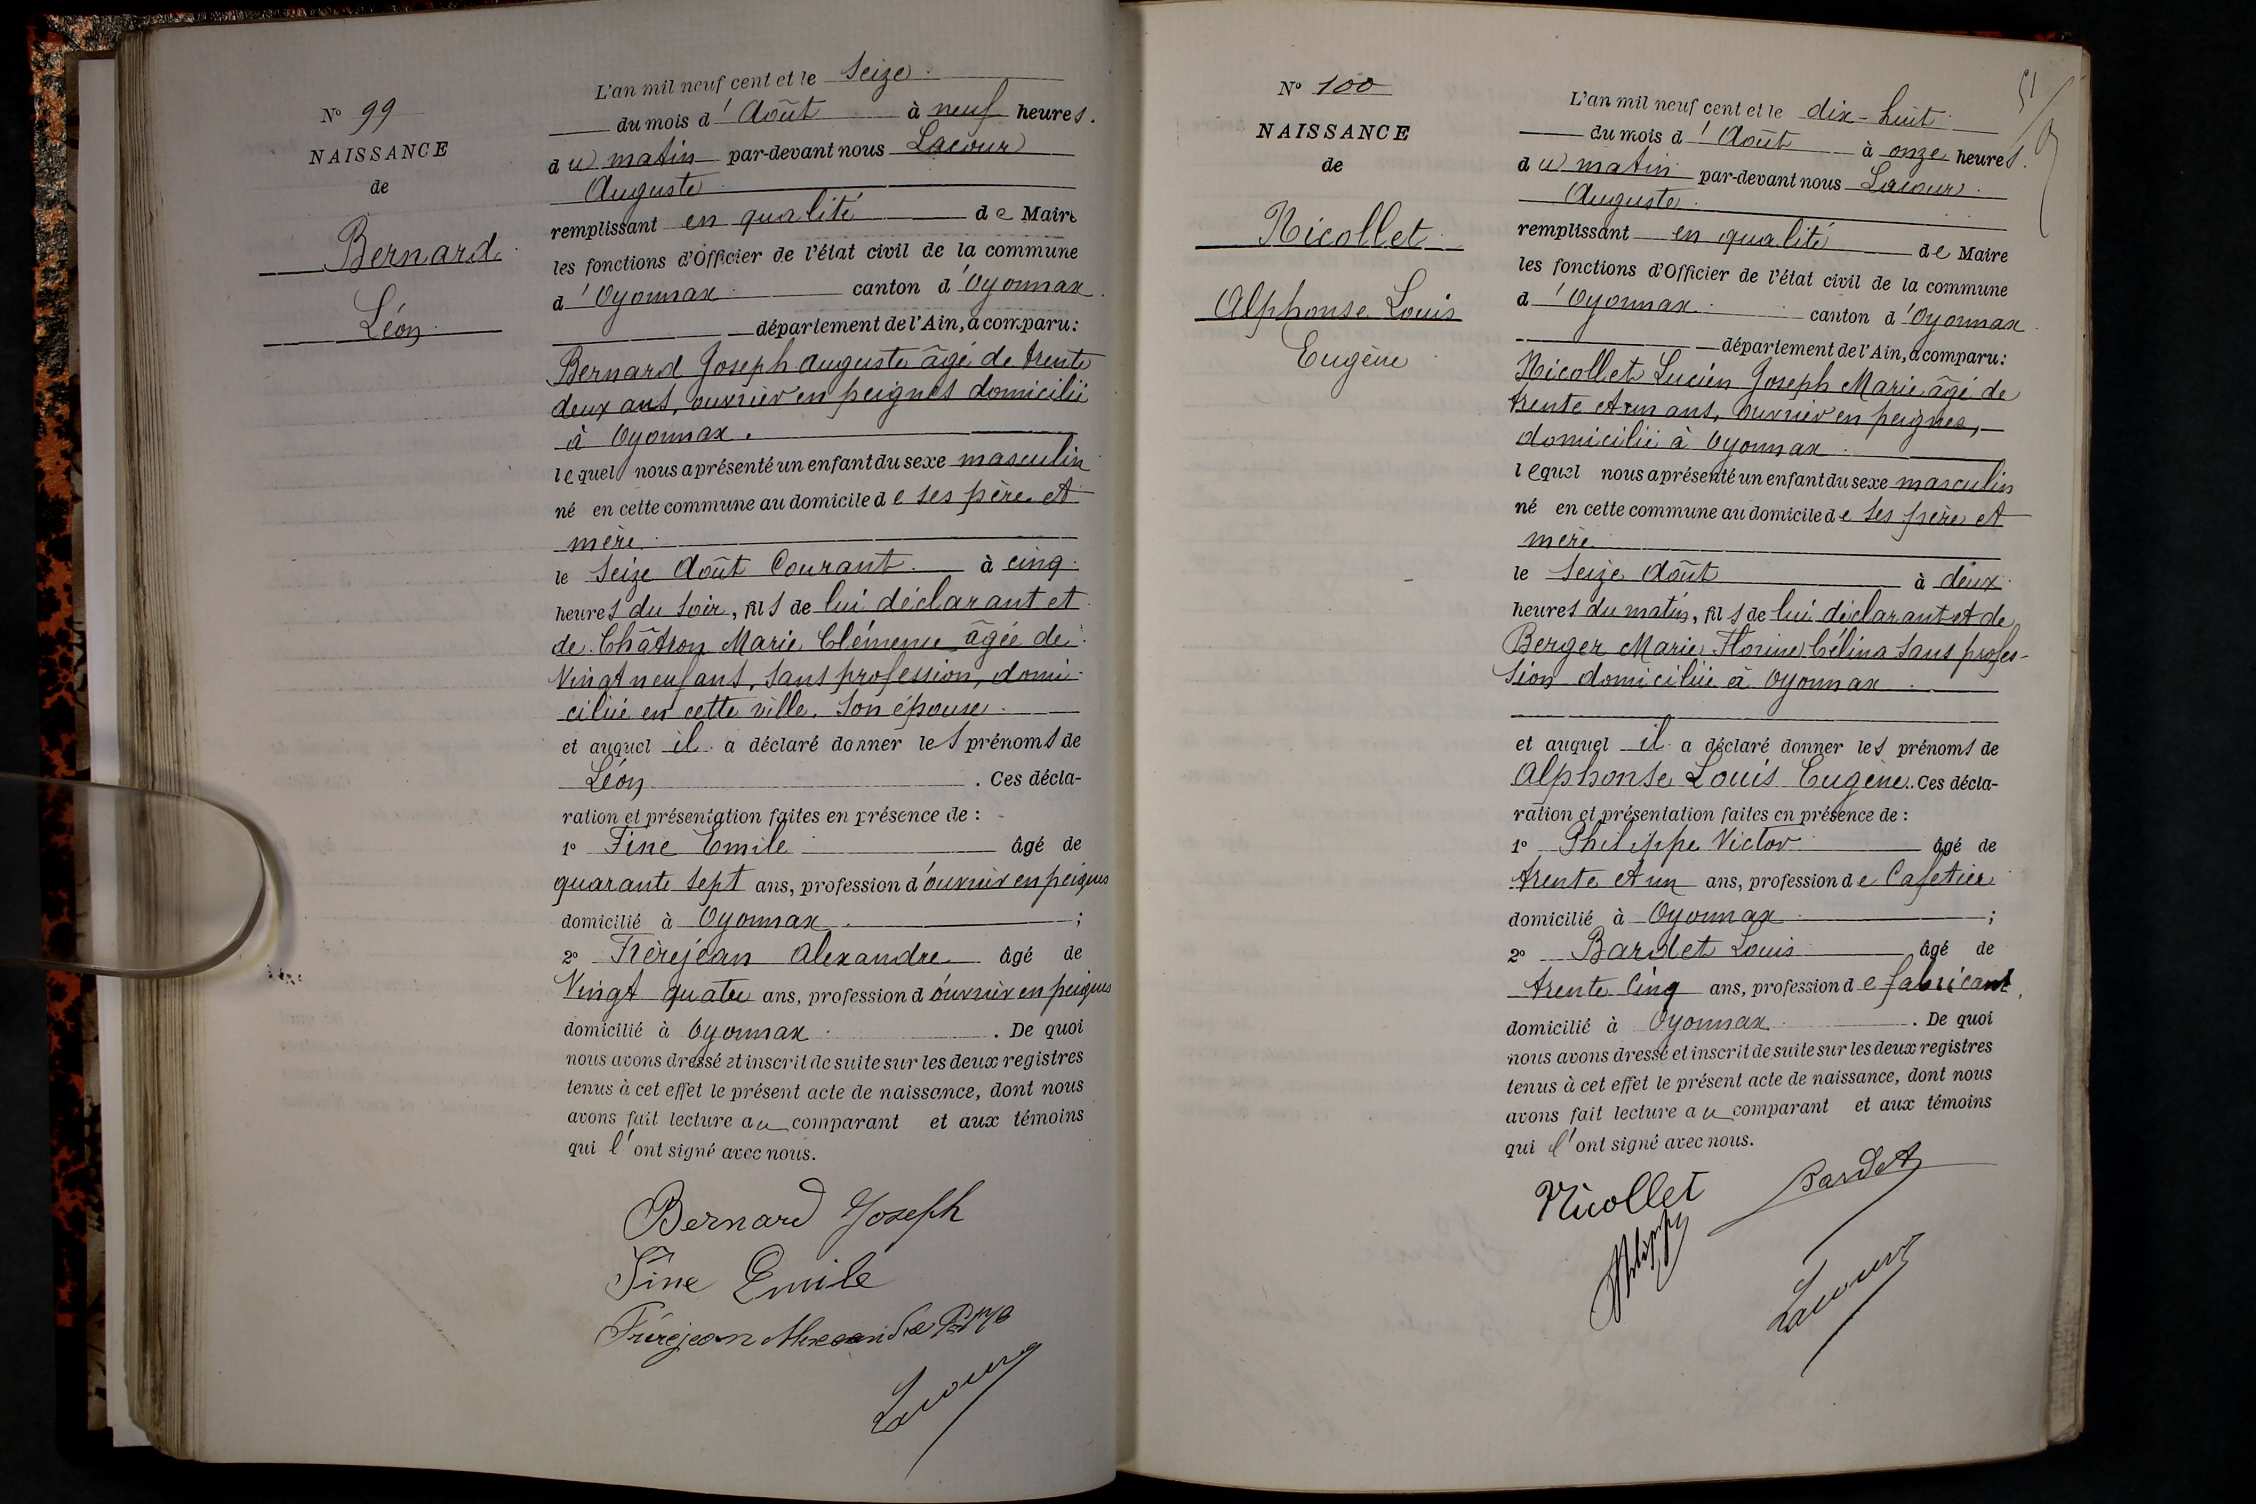 N° 99
NAISSANCE
de
Bernard
Léon
L'an mil neuf cent et le seize
du mois d'Août à neuf heures.
du matin par-devant nous Lacour
Auguste
remplissant en qualité de Maire
les fonctions d'Officier de l'état civil de la commune
d'Oyonnax canton d'Oyonnax
département de l'Ain, a comparu:
Bernard Joseph Auguste âgé de trente
deux ans, ouvrier en peignes domicilié
à Oyonnax.
lequel nous a présenté un enfant du sexe masculin
né en cette commune au domicile de ses père et
mère
le seize Août Courant à cinq
heures du soir, fils de lui déclarant et
de Châtron Marie Clémence âgée de
Vingt neuf ans, sans profession, domi
ciliée en cette ville. Son épouse
et auquel il a déclaré donner les prénoms de
Léon. Ces décla-
ration et présentation faites en présence de :
1° Fine Emile âgé de
quarante sept ans, profession d'ouvrier en peignes
domicilié à Oyonnax ;
2° Frèrejean Alexandre âgé de
Vingt quatre ans, profession d'ouvrier en peignes
domicilié à Oyonnax. De quoi
nous avons dressé et inscrit de suite sur les deux registres
tenus à cet effet le présent acte de naissance, dont nous
avons fait lecture au comparant et aux témoins
qui l'ont signé avec nous.
Bernard Joseph
Fine Emile
Frèrejean Alexandre
Lacour
N° 100
NAISSANCE
de
Nicollet
Alphonse Louis
Eugène
51
L'an mil neuf cent et le dix-huit
du mois d'Août à onze heures.
du matin par-devant nous Lacour
Auguste
remplissant en qualité de Maire
les fonctions d'Officier de l'état civil de la commune
d'Oyonnax canton d'Oyonnax
département de l'Ain, a comparu:
Nicollet Lucien Joseph Marie âgé de
trente et un ans, ouvrier en peignes,
domicilié à Oyonnax
lequel nous a présenté un enfant du sexe masculin
né en cette commune au domicile de ses père et
mère
le seize Août à deux
heures du matin, fils de lui déclarant et de
Berger Marie Florine Célina sans profes-
sion domiciliée à Oyonnax
et auquel il a déclaré donner les prénoms de
Alphonse Louis Eugène. Ces décla-
ration et présentation faites en présence de :
1° Philippe Victor âgé de
trente et un ans, profession de Cafetier
domicilié à Oyonnax ;
2° Bardet Louis âgé de
trente Cinq ans, profession de fabricant,
domicilié à Oyonnax. De quoi
nous avons dressé et inscrit de suite sur les deux registres
tenus à cet effet le présent acte de naissance, dont nous
avons fait lecture au comparant et aux témoins
qui l'ont signé avec nous.
Nicollet
Bardet
Philippe
Lacour